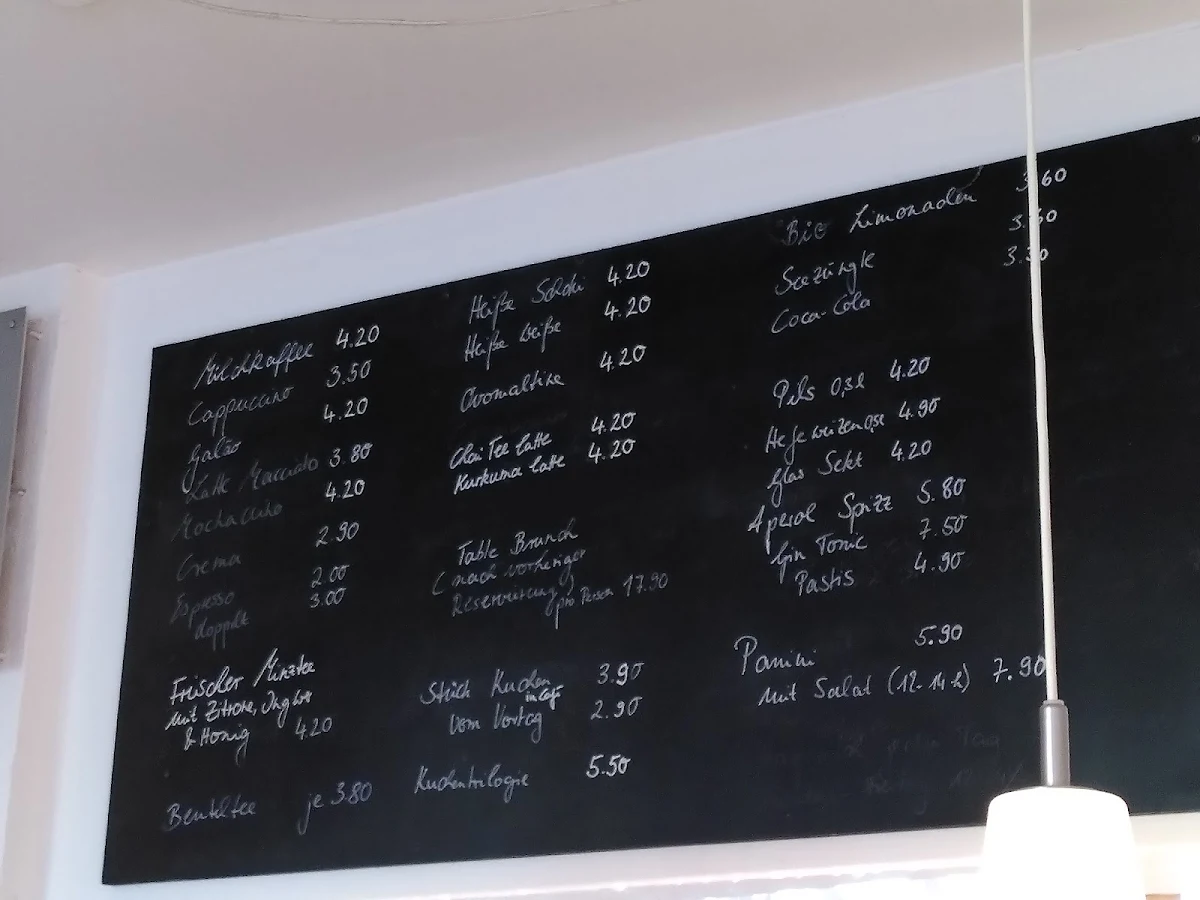 Milchkaffee 4.20
Cappuccino 3.50
Galão 4.20
Latte Macciato 3.80
Mochaccino 4.20
Crema 2.90
Espresso 2.00
doppelt 3.00
Frischer Minztee
mit Zitrone, Ingwer
& Honig 4.20
Beuteltee je 3.80
Heiße Schoki 4.20
Heiße Weiße 4.20
Ovomaltine 4.20
Chai Tee Latte 4.20
Kurkuma Latte 4.20
Table Brunch
(nach vorheriger
Reservierung) pro Person 17.90
Stück Kuchen 3.90
vom Vortag 2.90
Kuchentrilogie 5.50
Bio Limonaden 3.60
Seezüngle
Coca-Cola
Pils 0,3l 4.20
Hefeweizen 0,5l 4.90
Glas Sekt 4.20
Aperol Spizz 5.80
Gin Tonic 7.50
Pastis 4.90
Panini 5.90
mit Salat (12-14 h) 7.90